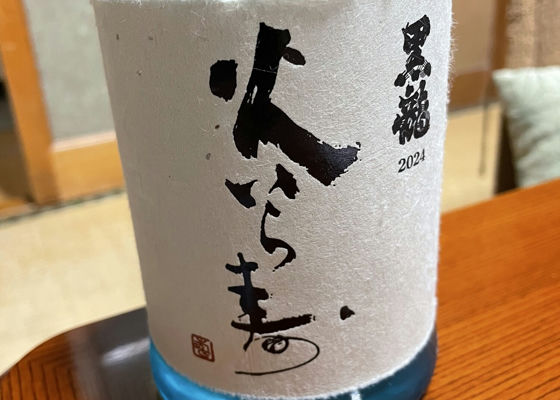 黒龍
2024
火いら寿